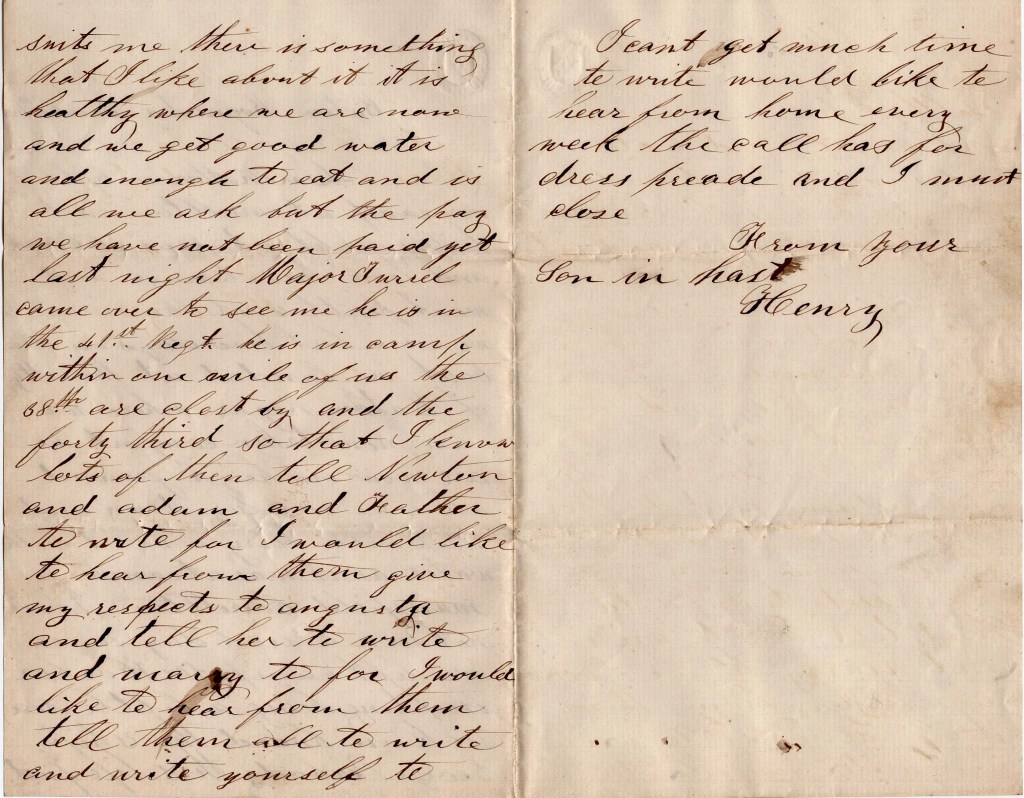 suits me there is something
that I like about it it is
healthy where we are now
and we get good water
and enough to eat and is
all we ask but the pay
we have not been paid yet
last night Major Furrel
came over to see me he is in
the 41.st Regt he is in camp
within one mile of us the
38th are clost by and the
forty third so that I know
lots of then tell Newton
and adam and Father
to write for I would like
to hear from them give
my respects to augusta
and tell her to write
and marry to for I would
like to hear from them
tell them all to write
and write yourself to
I cant get much time
to write would like to
hear from home every
week the call has for
dress preade and I must
close
From your
Son in hast
Henry